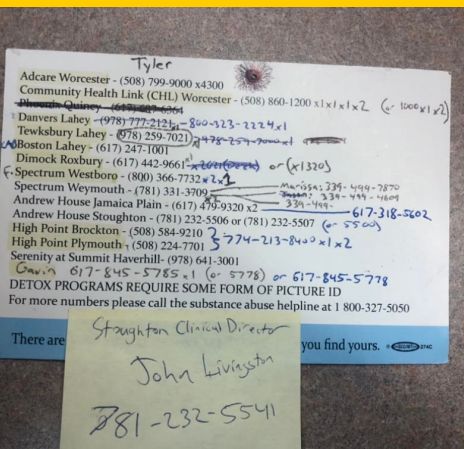 Tyler
Adcare Worcester - (508) 799-9000 x4300
Community Health Link (CHL) Worcester - (508) 860-1200 x1x1x1x2 (or 1000x1x2)
Phoenix Quincy (617) 6364
Danvers Lahey - (978) 777-2121 - 800-323-2224x1
Tewksbury Lahey - (978) 259-7021
Boston Lahey - (617) 247-1001
Dimock Roxbury - (617) 442-9661 or (x1320)
F. Spectrum Westboro - (800) 366-7732 x2x1
Spectrum Weymouth - (781) 331-3709 Marissa: 339-499-7870
339-499-4609
Andrew House Jamaica Plain - (617) 479-9320 x2 339-499- 617-318-5602
Andrew House Stoughton - (781) 232-5506 or (781) 232-5507 (or 5500)
High Point Brockton - (508) 584-9210
High Point Plymouth - (508) 224-7701 } 774-213-8400x1x2
Serenity at Summit Haverhill- (978) 641-3001
Gavin 617-845-5785x1 (or 5778) or 617-845-5778
DETOX PROGRAMS REQUIRE SOME FORM OF PICTURE ID
For more numbers please call the substance abuse helpline at 1 800-327-5050
There are you find yours. 274C
Stoughton Clinical Director
John Livingston
781-232-5541